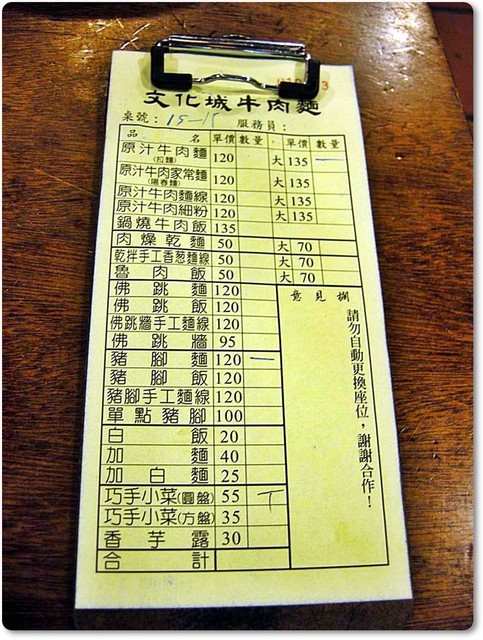 文化城牛肉麵
桌號：15-15 服務員：
品名 單價 數量 單價 數量
原汁牛肉麵(拉麵) 120 大 135 一
原汁牛肉家常麵(陽春麵) 120 大 135
原汁牛肉麵線 120 大 135
原汁牛肉細粉 120 大 135
鍋燒牛肉飯 135
肉燥乾麵 50 大 70
乾拌手工香葱麵線 50 大 70
魯肉飯 50 大 70
意見擱
請勿自動更換座位，謝謝合作！
佛跳麵 120
佛跳飯 120
佛跳牆手工麵線 120
佛跳牆 95
豬腳麵 120 一
豬腳飯 120
豬腳手工麵線 120
單點豬腳 100
白飯 20
加麵 40
加白麵 25
巧手小菜(圓盤) 55 丅
巧手小菜(方盤) 35
香芋露 30
合計